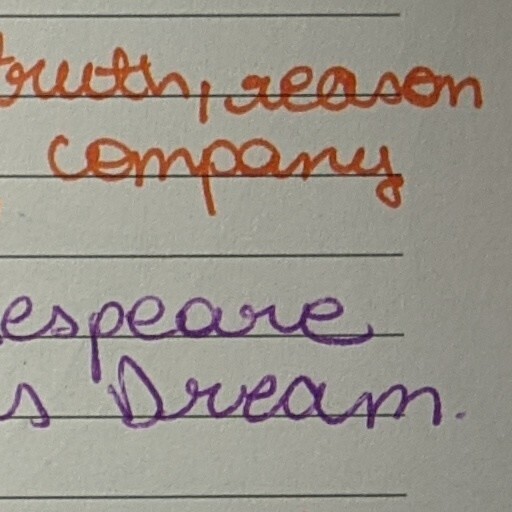 truth, reason
company
espeare
s Dream.